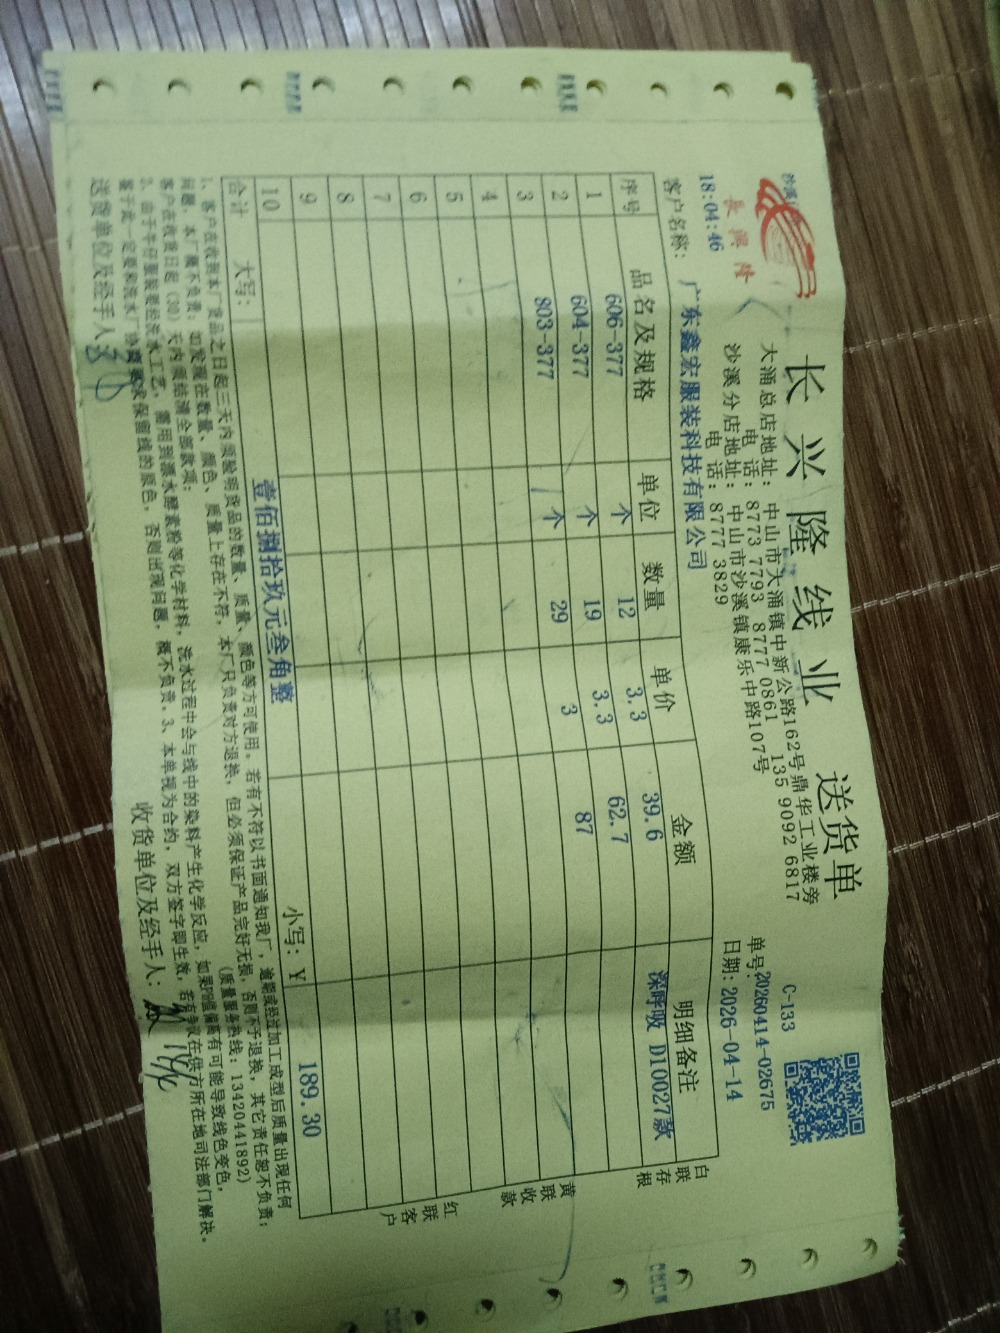 長興隆
18:04:46
长兴隆线业 送货单
大涌总店地址：中山市大涌镇中新公路162号鼎华工业楼旁
电话：8773 7793 8777 0861 135 9092 6817
沙溪分店地址：中山市沙溪镇康乐中路107号
电话：8777 3829
C-133
单号：20260414-02675
日期：2026-04-14
客户名称：广东鑫宏服装科技有限公司
序号 品名及规格 单位 数量 单价 金额 明细备注
1 606-377 个 12 3.3 39.6 深呼吸 D10027款
2 604-377 个 19 3.3 62.7
3 803-377 个 29 3 87
4
5
6
7
8
9
10
合计 大写：壹佰捌拾玖元叁角整 小写：Y 189.30
白联存根
黄联收款
红联客户
1、客户在收到本厂货品之日起三天内须验明货品的数量、质量、颜色等方可使用。若有不符以书面通知我厂，逾期或经过加工成型后质量出现任何
问题，本厂概不负责；如发现在数量、颜色、质量上存在不符，本厂只负责对方退换，但必须保证产品完好无损，否则不予退换，其它责任恕不负责；
客户在收货日起（30）天内须结清全部款项；
(质量服务热线：13420441892)
2、由于牛仔服装要经洗水工艺，需用到漂水酵素粉等化学材料，洗水过程中会与线中的染料产生化学反应，如果PH值偏高有可能导致线色变色，
鉴于此一定要和洗水厂协商要求保留线的原色，否则出现问题，概不负责。3、本单视为合约，双方签字即生效，若有争议在供方所在地司法部门解决。
送货单位及经手人：
收货单位及经手人：